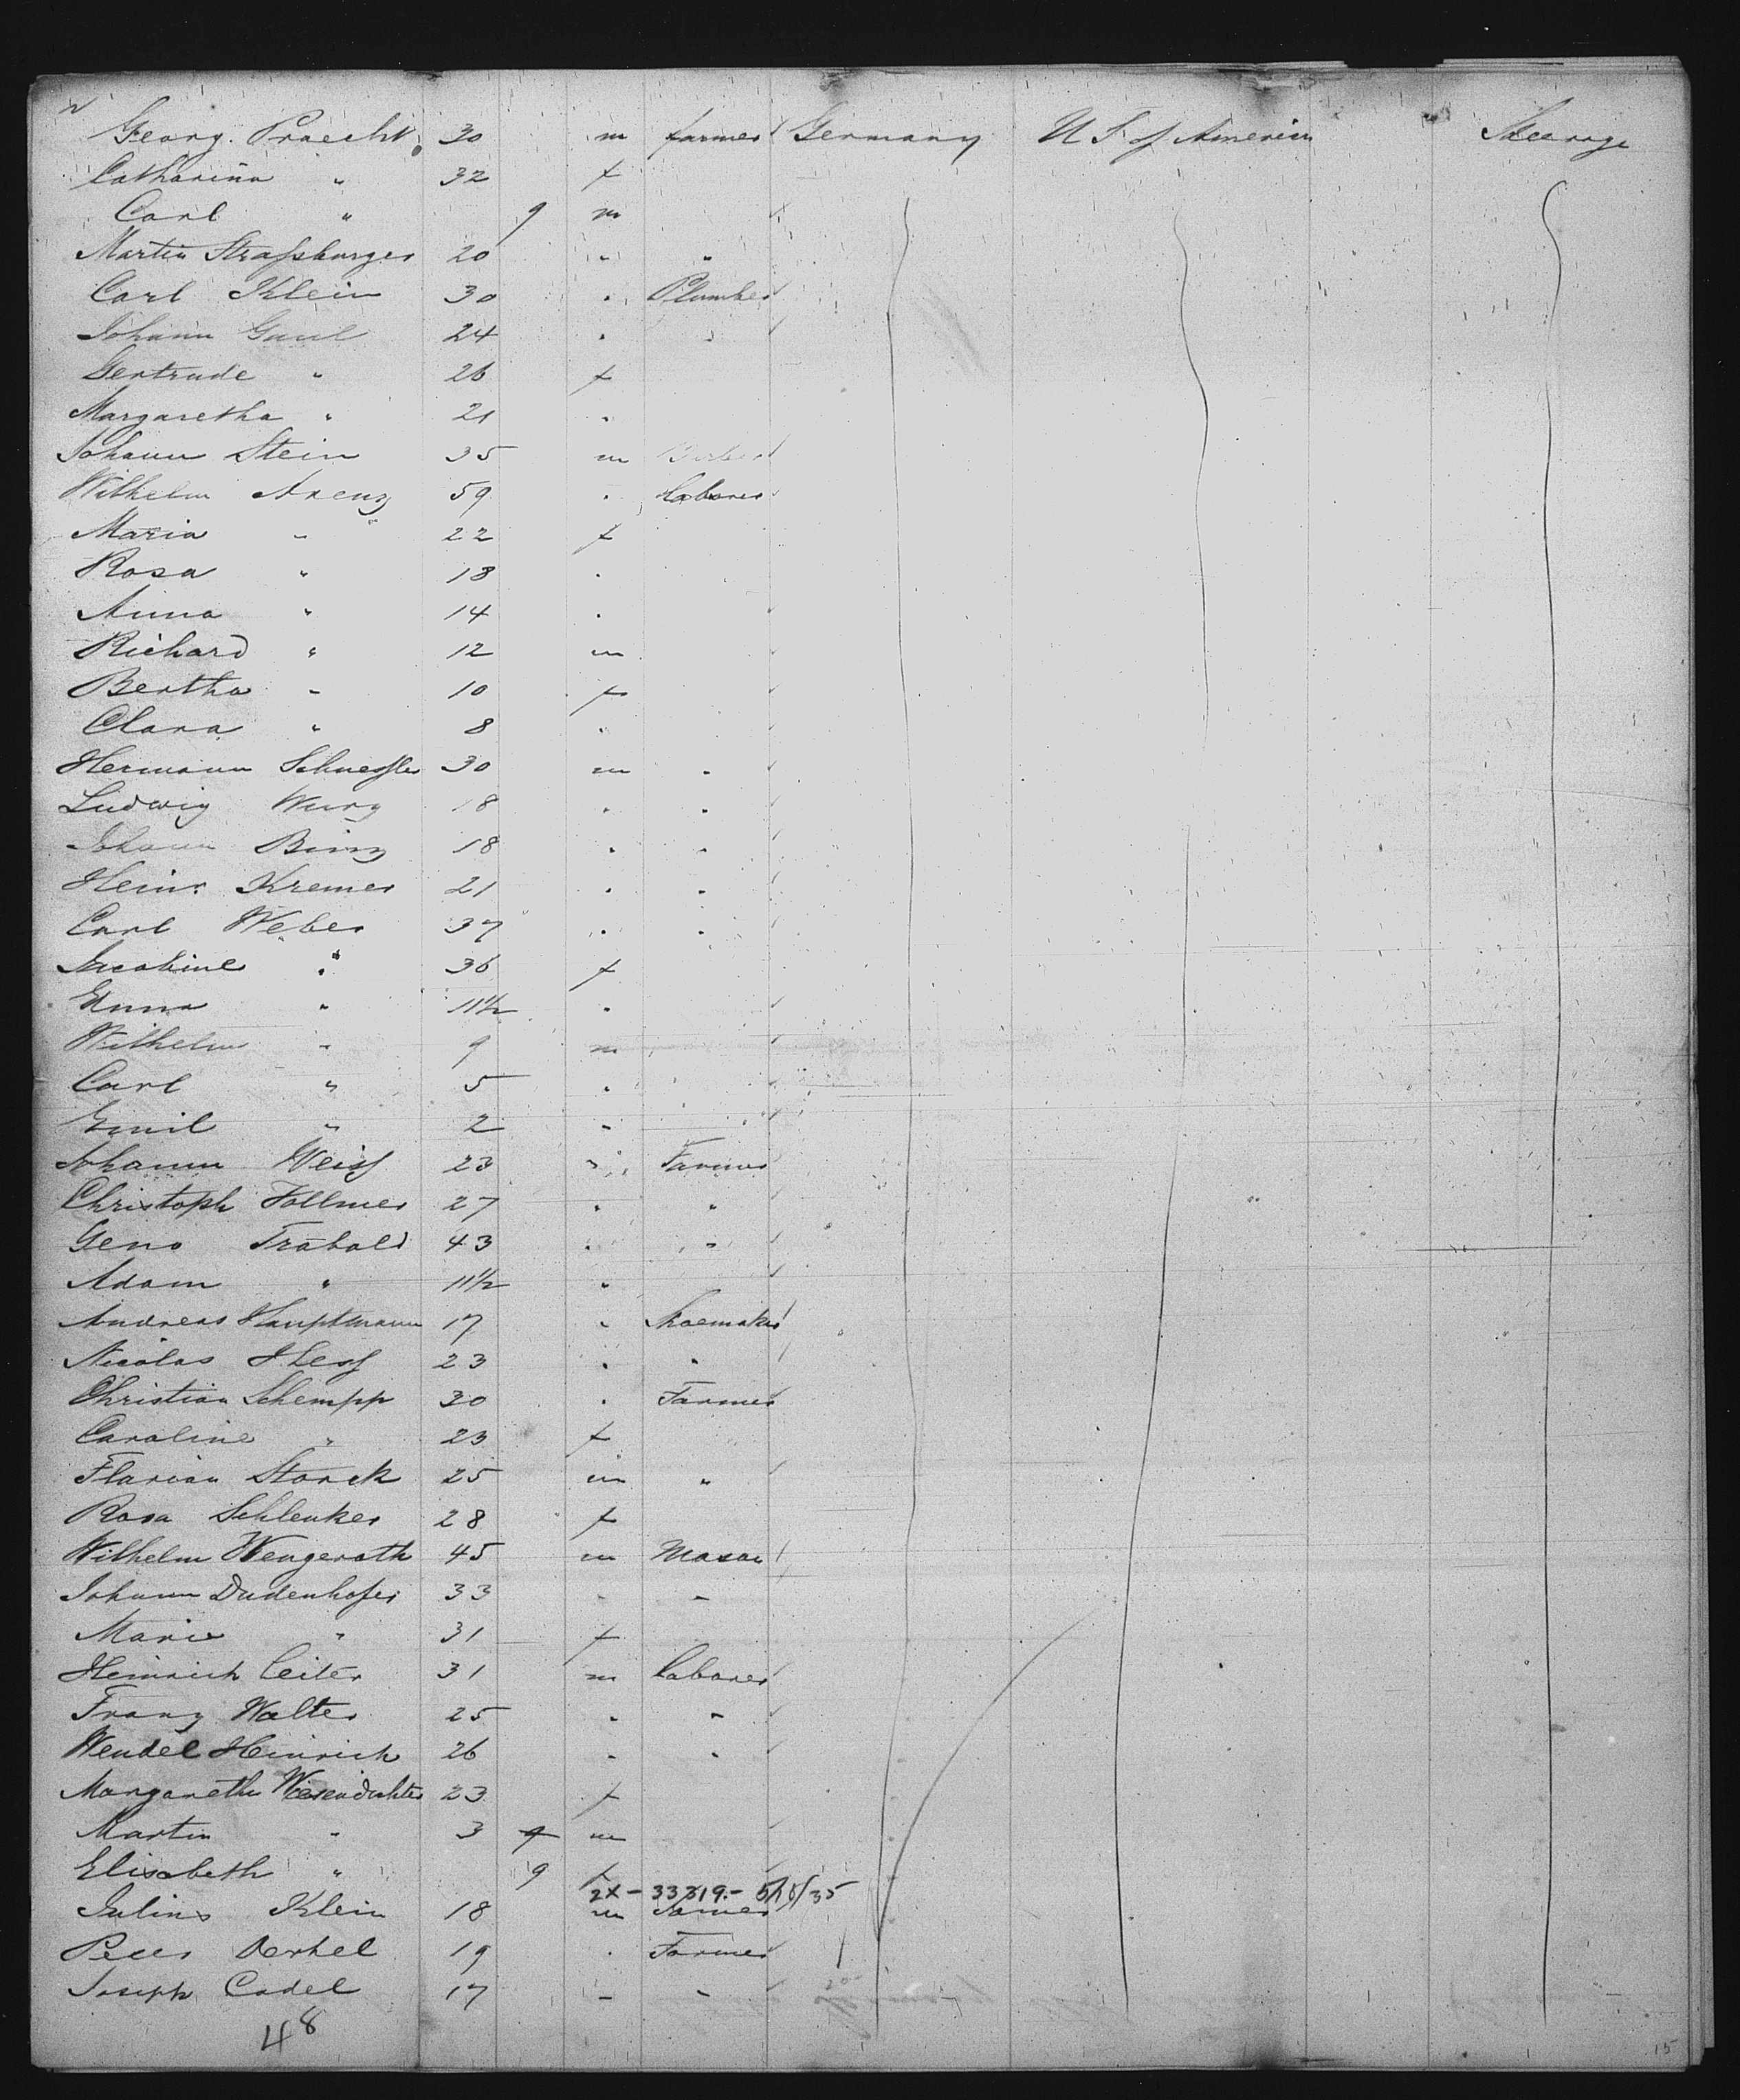 Georg. Praecht. 30 m farmer Germany U S of America Steerage
Catharina " 32 f
Carl " 9 m
Martin Strassburger 20 " "
Carl Klein 30 " Plumber
Johann Gaul 24 " "
Gertrude " 26 f
Margaretha " 21 "
Johann Stein 35 m
Wilhelm Arenz 59 " Laborer
Maria " 22 f
Rosa " 18 "
Anna " 14 "
Richard " 12 m
Bertha " 10 f
Clara " 8 "
Hermann 30 m "
Ludwig Wurz 18 " "
Johann Binz 18 " "
Heinr. Kremer 21 " "
Carl Weber 37 " "
Jacobine " 36 f
Emma " 11½ "
Wilhelm " 9 m
Carl " 5 "
Emil " 2 "
Johann Weiss 23 " Farmer
Christoph Vollmer 27 " "
Trabold 43 " "
Adam " 11½ "
Andreas Hauptmann 17 " Shoemaker
Nicolas Hess 23 " "
Christian Schempp 30 " Farmer
Caroline " 23 f
Florian Storck 25 m "
Rosa Schlenker 28 f
Wilhelm Wengerath 45 m Mason
Johann Dudenhofer 33 " "
Marie " 31 f
Heinrich Leiter 31 m Laborer
Franz Walter 25 " "
Wendel Heinrich 26 " "
Margarethe 23 f
Martin " 3 9 m
Elisabeth " 9 f
2X - 33319 -
Julius Klein 18 m Farmer
Peter Oerkel 19 " Farmer
Joseph Cadel 17 " "
48
15